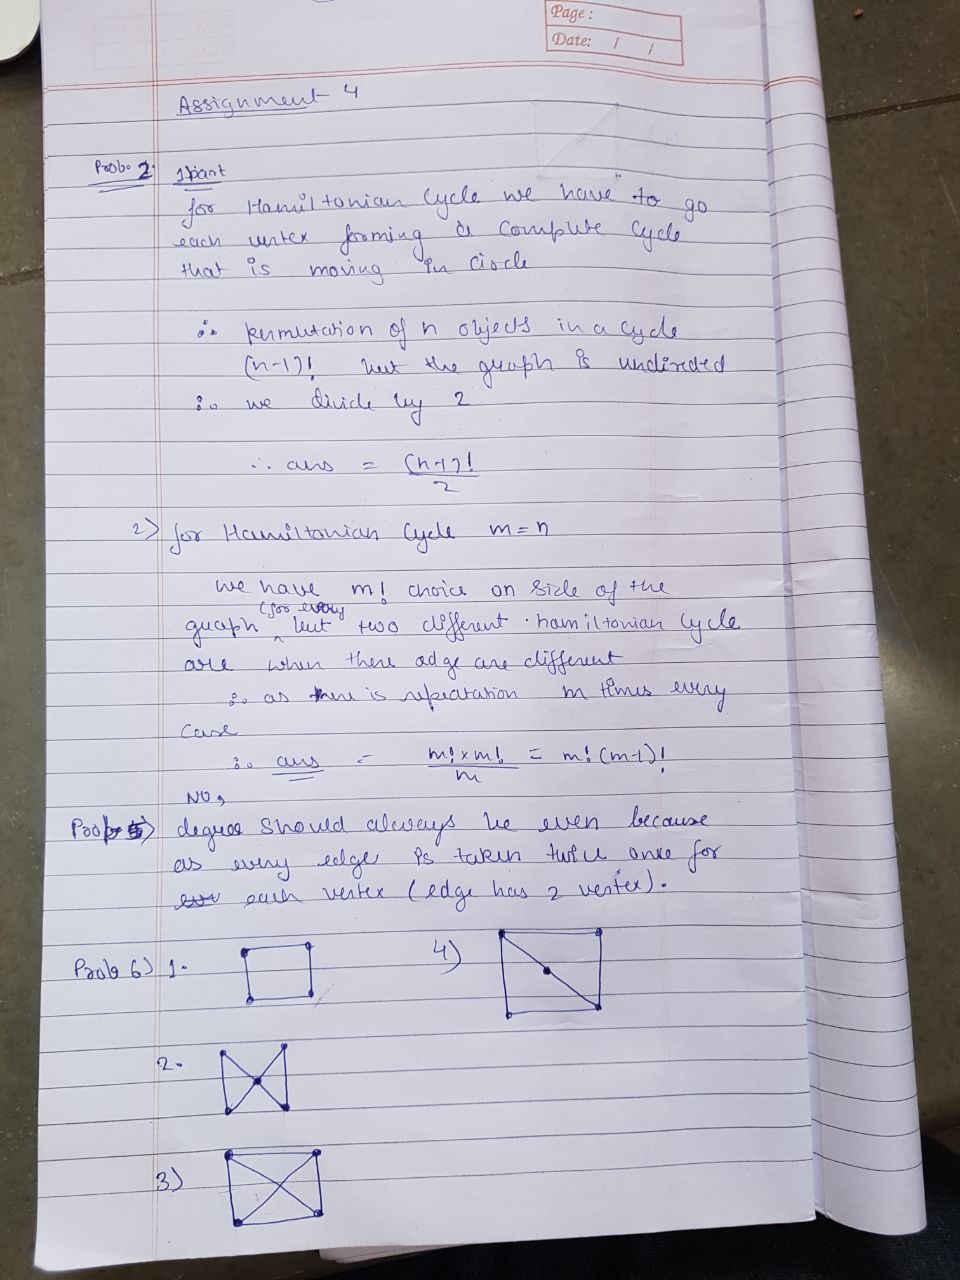 Page:
Date: / /
Assignment 4
Prob. 2. 1) part
for Hamiltonian Cycle we have to go
each vertex forming a complete Cycle
that is moving in circle
∴ permutation of n objects in a cycle
(n-1)! but the graph is undirected
∴ we divide by 2
∴ ans = (n-1)!/2
2) for Hamiltonian Cycle m=n
we have m! choice on side of the
(for every
graph but two different hamiltonian Cycle
are when there edge are different
∴ as there is m times every
case
∴ ans = m!×m!/m = m!(m-1)!
NO,
Prob 5) degree should always be even because
as every edge is taken twice once for
each vertex (edge has 2 vertex).
Prob 6) 1. 4)
2.
3)